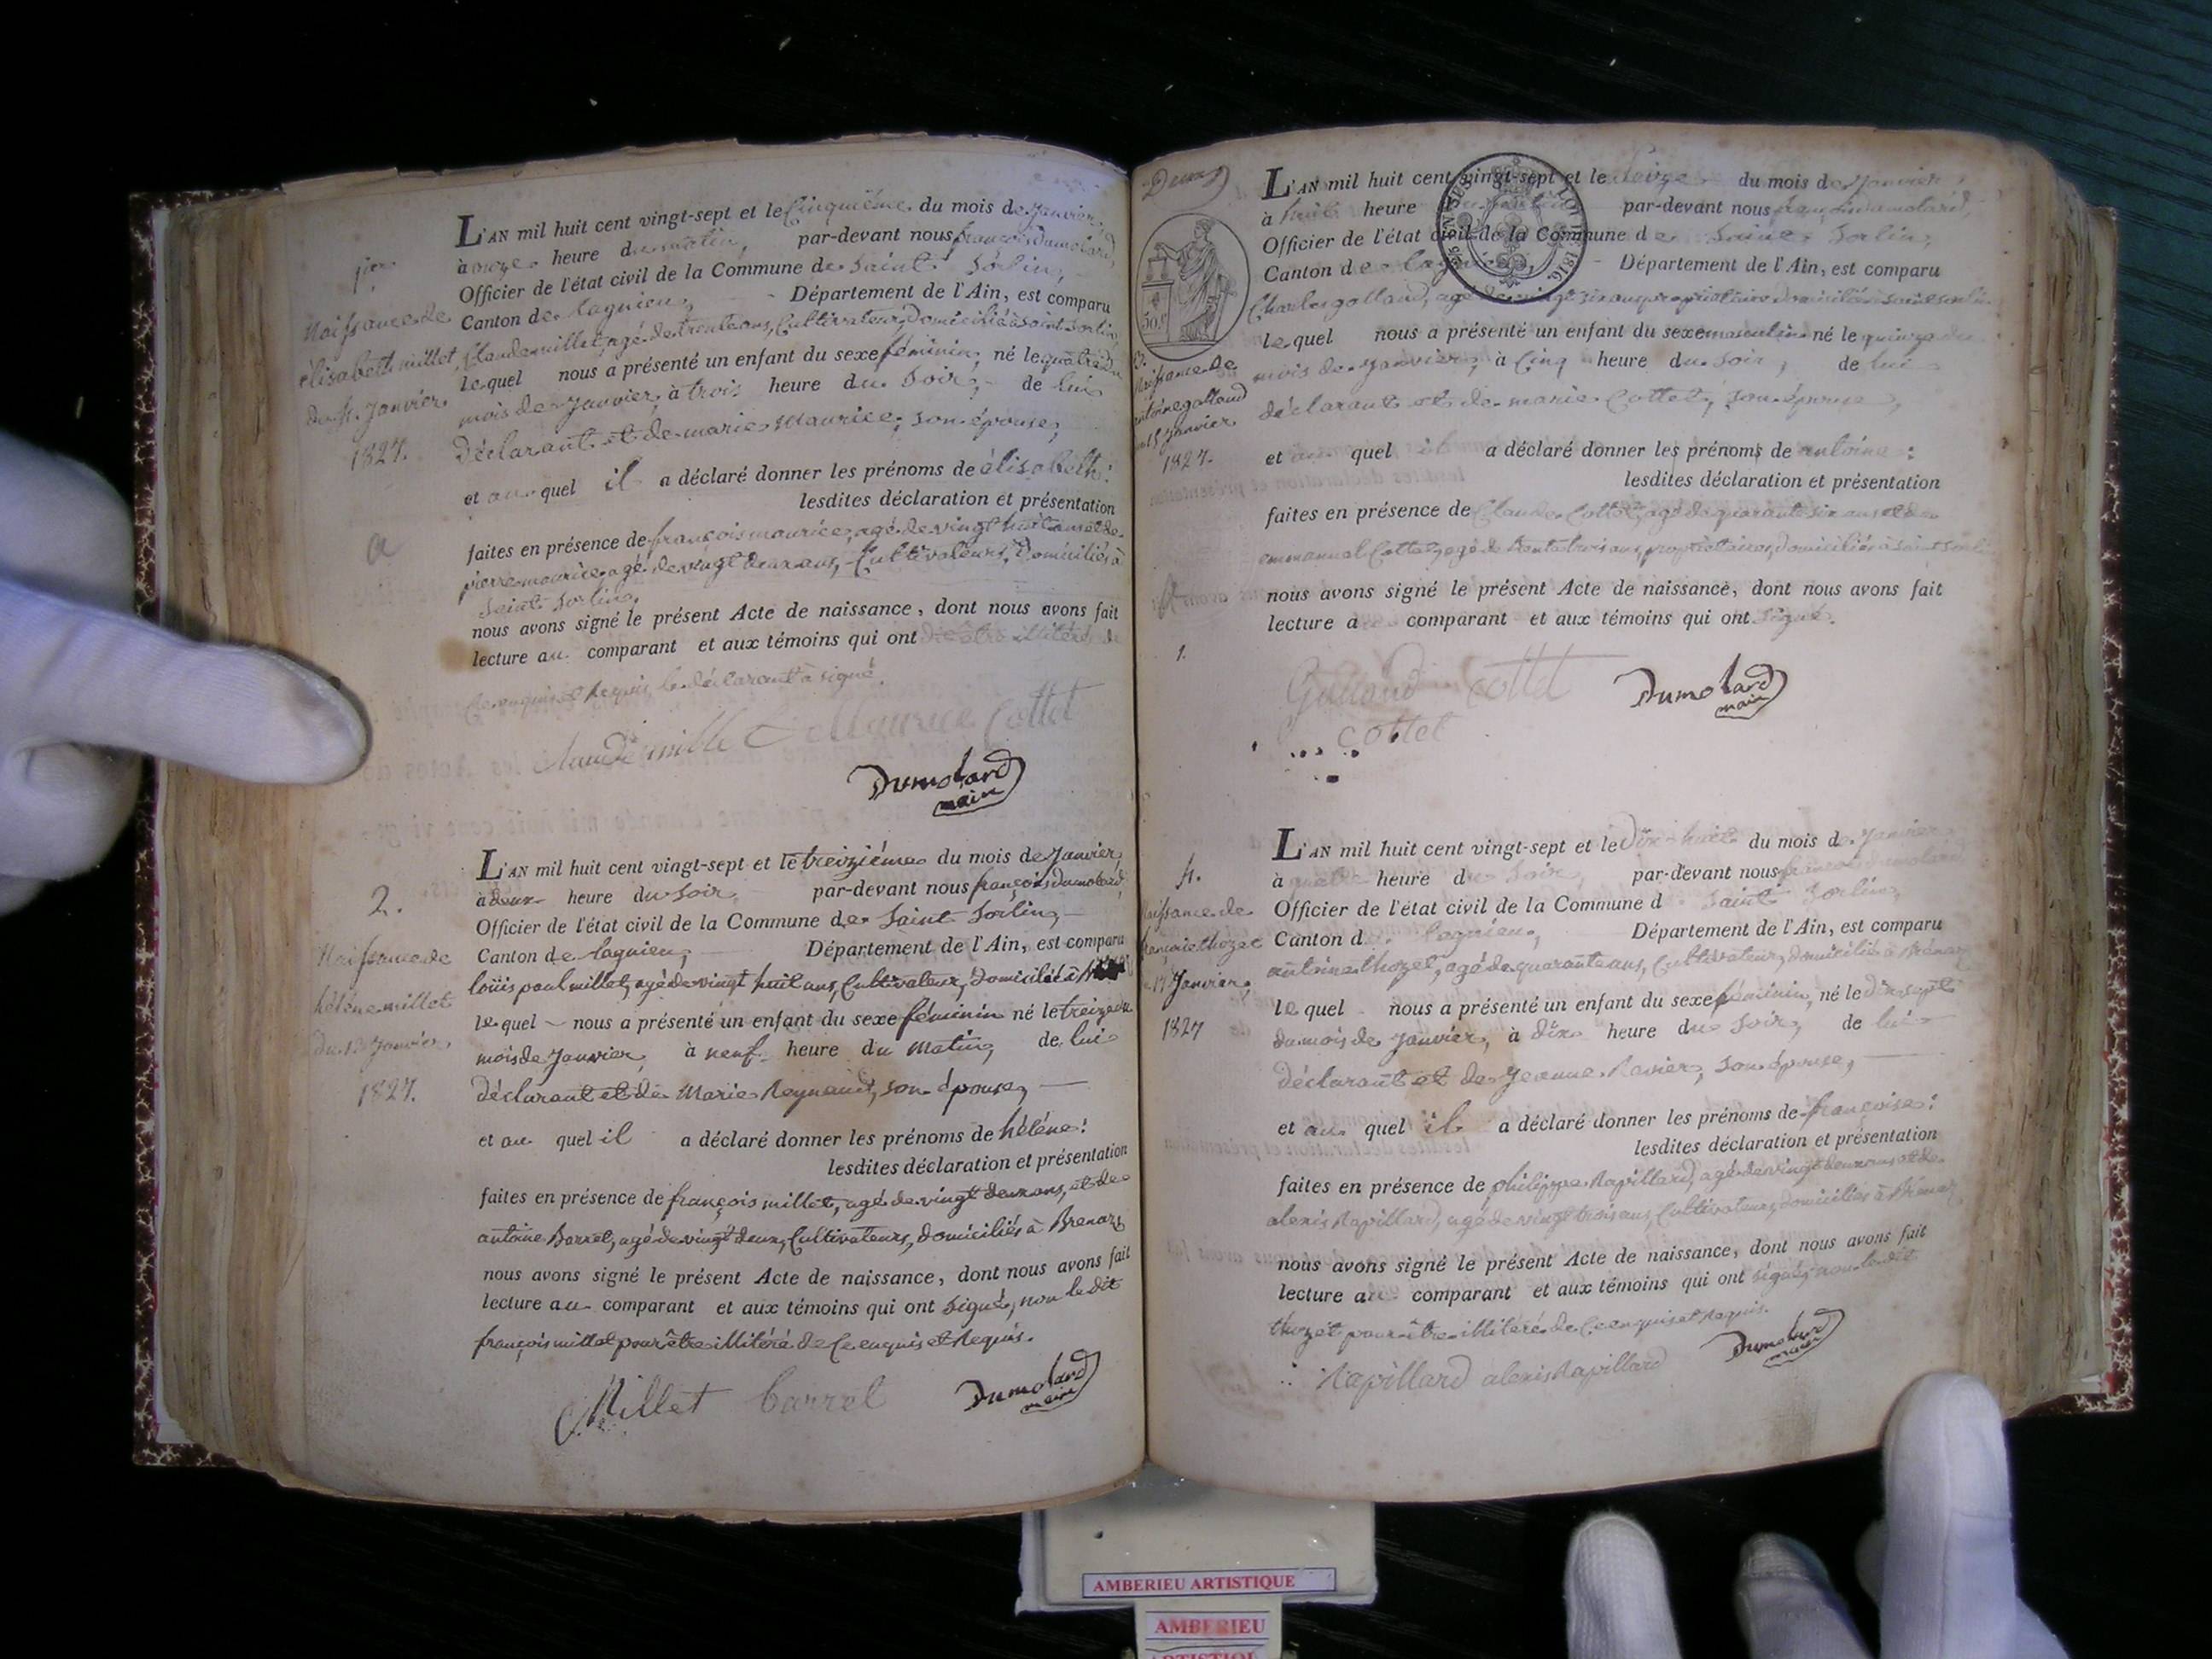 1er
Naissance de
élisabeth millet
du 4 Janvier
1827.
L'AN mil huit cent vingt-sept et le Cinquième du mois de Janvier
à onze heure du matin, par-devant nous françois dumolard,
Officier de l'état civil de la Commune de Saint Sorlin,
Canton de lagnieu, Département de l'Ain, est comparu
Claude millet, agé de trente ans, Cultivateur, domicilié à saint Sorlin
lequel nous a présenté un enfant du sexe féminin, né le quatre du
mois de Janvier, à trois heure du Soir, de lui
déclarant et de marie Maurice, son épouse,
et au quel il a déclaré donner les prénoms de élisabeth:
lesdites déclaration et présentation
faites en présence de françois maurice, agé de vingt huit ans et de
pierre maurice agé de vingt deux ans, Cultivateurs, domiciliés à
Saint Sorlin,
nous avons signé le présent Acte de naissance, dont nous avons fait
lecture au comparant et aux témoins qui ont dit être illitérés de
Ce enquis et Requis, le déclarant a signé.
Claude mille Maurice Cottet
Dumolard
maire
2.
Naissance de
hélène millet
du 13 Janvier
1827.
L'AN mil huit cent vingt-sept et le treizième du mois de Janvier
à deux heure du Soir, par-devant nous françois dumolard,
Officier de l'état civil de la Commune de Saint Sorlin,
Canton de lagnieu, Département de l'Ain, est comparu
louis paul millet, agé de vingt huit ans, Cultivateur, domicilié à
lequel nous a présenté un enfant du sexe féminin né le treize du
mois de Janvier, à neuf heure du Matin, de lui
déclarant et de Marie Reynaud, son épouse,
et au quel il a déclaré donner les prénoms de hélène:
lesdites déclaration et présentation
faites en présence de françois millet, agé de vingt deux ans, et de
antoine Barret, agé de vingt deux, Cultivateurs, domiciliés à Brenaz
nous avons signé le présent Acte de naissance, dont nous avons fait
lecture au comparant et aux témoins qui ont signé, non le dit
françois millet pour être illitéré de Ce enquis et Requis.
Millet barrel
Dumolard
maire
Deux
50 c
3.
Naissance de
antoine galland
15 Janvier
1827.
L'AN mil huit cent vingt-sept et le Seize du mois de Janvier
à huit heure par-devant nous françois dumolard,
Officier de l'état civil de la Commune de Saint Sorlin,
Canton de lagnieu, Département de l'Ain, est comparu
Charles galland, agé de vingt six ans propriétaire domicilié à saint Sorlin
lequel nous a présenté un enfant du sexe masculin né le quinze du
mois de Janvier, à Cinq heure du Soir, de lui
déclarant et de marie Cottet, son épouse,
et au quel il a déclaré donner les prénoms de antoine:
lesdites déclaration et présentation
faites en présence de Claude Cottet, agé de quarante six ans et de
emmanuel Cottet, agé de trente trois ans, propriétaires, domiciliés à saint Sorlin
nous avons signé le présent Acte de naissance, dont nous avons fait
lecture a comparant et aux témoins qui ont signé.
1.
Galland Cottet
Cottet
Dumolard
maire
4.
Naissance de
françoise thozet
17 Janvier
1827
L'AN mil huit cent vingt-sept et le Dix-huit du mois de Janvier
à quatre heure du Soir, par-devant nous françois dumolard,
Officier de l'état civil de la Commune d Saint Sorlin,
Canton d lagnieu, Département de l'Ain, est comparu
antoine thozet, agé de quarante ans, Cultivateur, domicilié à Brenaz
lequel nous a présenté un enfant du sexe féminin, né le Dix sept
du mois de Janvier, à dix heure du Soir, de lui
déclarant et de Jeanne Ravier, son épouse,
et au quel il a déclaré donner les prénoms de françoise:
lesdites déclaration et présentation
faites en présence de philippe Rapillard, agé de vingt deux ans et de
alexis Rapillard, agé de vingt trois ans, Cultivateurs, domiciliés à Brenaz
nous avons signé le présent Acte de naissance, dont nous avons fait
lecture au comparant et aux témoins qui ont signé, non le dit
thozet pour être illitéré de Ce enquis et Requis.
Rapillard alexis Rapillard
Dumolard
maire
AMBERIEU ARTISTIQUE
AMBERIEU
ARTISTIQUE